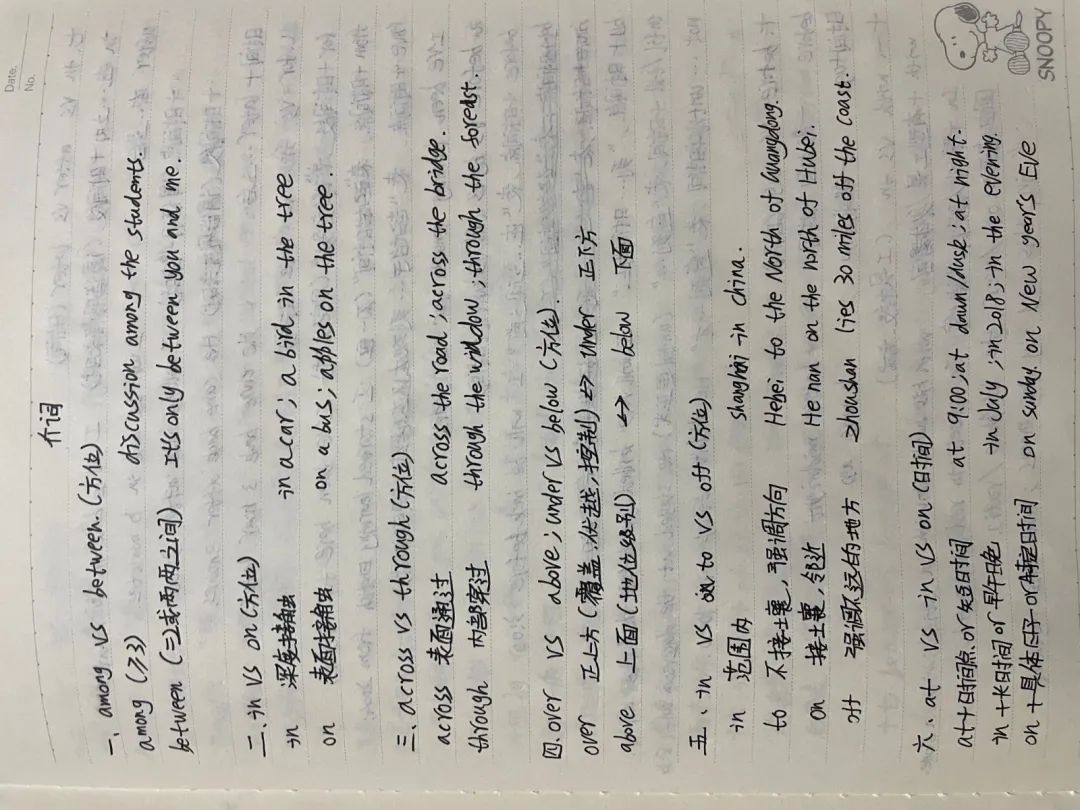 Date.
No.
介词
一、among vs between (方位)
among (≥3) discussion among the students.
between (三或两两之间) It's only between you and me.
二、in VS on (方位)
in 深度接触 in a car; a bird in the tree
on 表面接触 on a bus; apples on the tree.
三、across vs through (方位)
across 表面通过 across the road; across the bridge.
through 内部穿过 through the window; through the foredst.
四. over VS above; under VS below (方位).
over 正上方 (覆盖, 越, 控制) <-> under 正下方
above 上面 (地位级别) <-> below 下面
五. in VS on to VS off (方位)
in 范围内 shanghai in china.
to 不接壤, 强调方向 Hebei to the North of Guangdong.
on 接壤, 邻近 He nan on the north of Hubei.
off 强调远的地方 zhoushan lies 30 miles off the coast.
六. at VS in VS on (时间)
at + 时间点 or 短时间 at 9:00; at dawn/dusk; at night.
in + 长时间 or 早午晚 in July; in 2018; in the evening.
on + 具体日子 or 特定时间 on sunday. on New year's Eve
SNOOPY